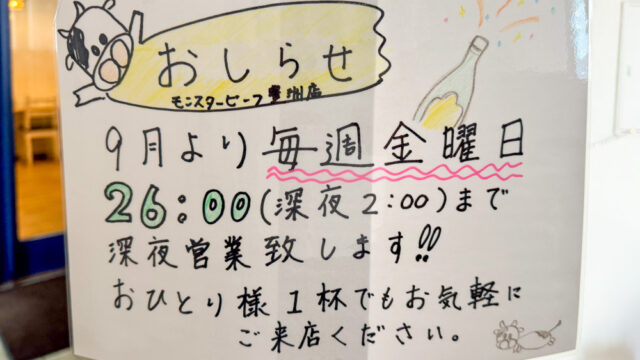 おしらせ
モンスタービーフ豊洲店
9月より毎週金曜日
26:00(深夜2:00)まで
深夜営業致します!!
おひとり様1杯でもお気軽に
ご来店ください。